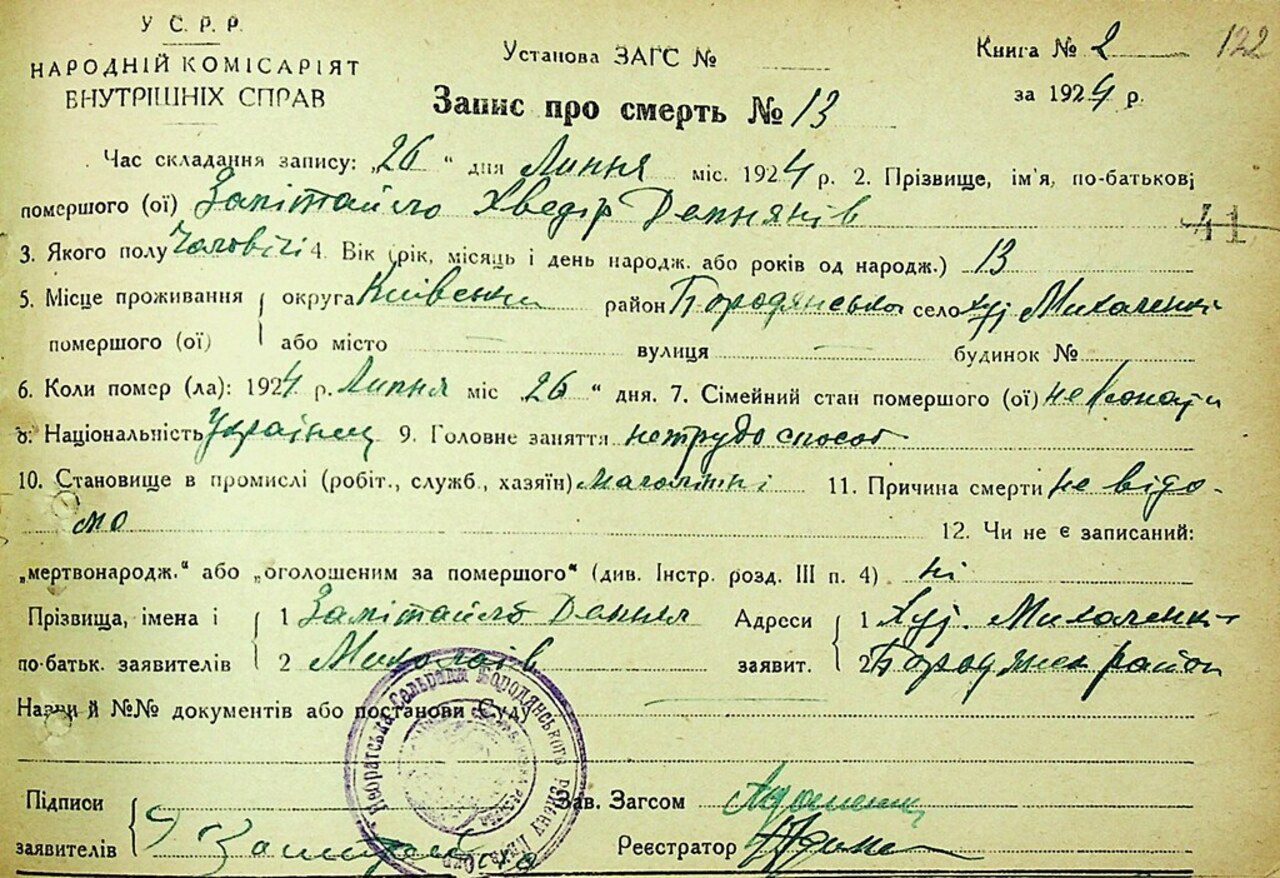 У С. Р. Р.
НАРОДНІЙ КОМІСАРІЯТ
ВНУТРІШНІХ СПРАВ
Установа ЗАГС №
Книга № 2 122
за 1924 р.
Запис про смерть № 13
Час складання запису: „26“ дня Липня міс. 1924 р. 2. Прізвище, ім'я, по-батькові
помершого (ої) Замітайло Хведір Данилів
41
3. Якого полу Чоловічі 4. Вік (рік, місяць і день народж. або років од народж.) 13
5. Місце проживання округа Київськи район Бородянсько село худ Михаленкі
помершого (ої) або місто вулиця будинок №
6. Коли помер (ла): 1924 р. Липня міс „26“ дня. 7. Сімейний стан помершого (ої) не
8. Національність Українец 9. Головне заняття нетрудоспособ
10. Становище в промислі (робіт., служб., хазяїн) малолітні 11. Причина смерти не відо-
мо 12. Чи не є записаний:
„мертвонародж.“ або „оголошеним за помершого“ (див. Інстр. розд. III п. 4) ні
Прізвища, імена і 1 Замітайло Данил Адреси 1 Худ. Михаленкі
по-батьк. заявителів 2 Миколаїв заявит. 2 Бородянск район
Назви й №№ документів або постанови Суду
Підписи Зав. Загсом
заявителів Реєстратор